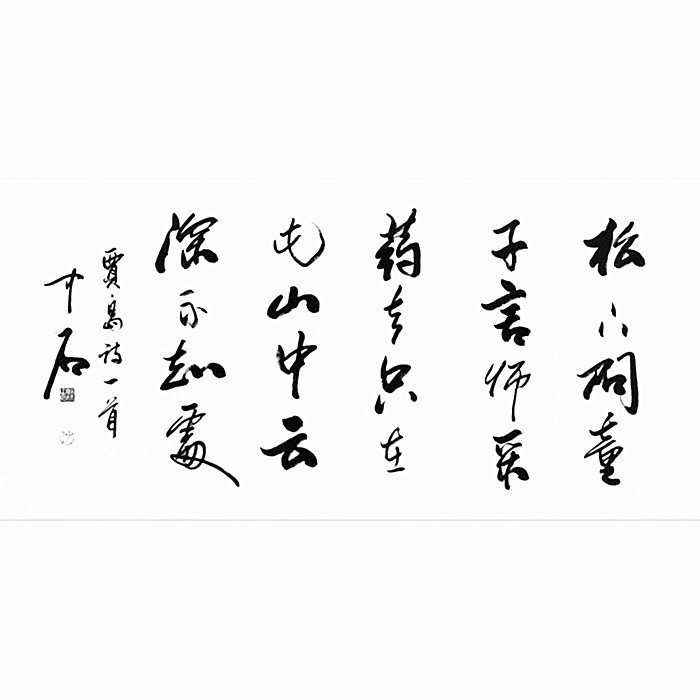 松下問童
子言师采
药去只在
此山中云
深不知處
賈島诗一首
中石